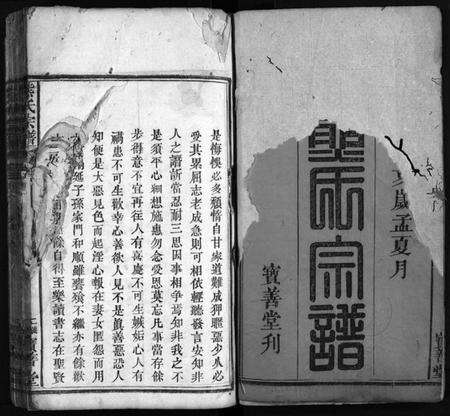 亥歲孟夏月
宗譜
寶善堂刊
寶善堂
是侮慢必多頹惰自甘家道難成狎暱惡少久必
受其累屈志老成急則可相依輕聽發言安知非
人之譖訴當忍耐三思因事相爭焉知非我之不
是須平心細想施惠勿念受恩莫忘凡事當存餘
步得意不宜再往人有喜慶不可生嫉妬心人有
禍患不可生歡幸心善欲人見不是眞善惡恐人
知便是大惡見色而起淫心報在妻女匿怨而用
延子孫家門和順雖齏飧不繼亦有餘歡
餘自得至樂讀書志在聖賢
氏宗譜
寶善堂